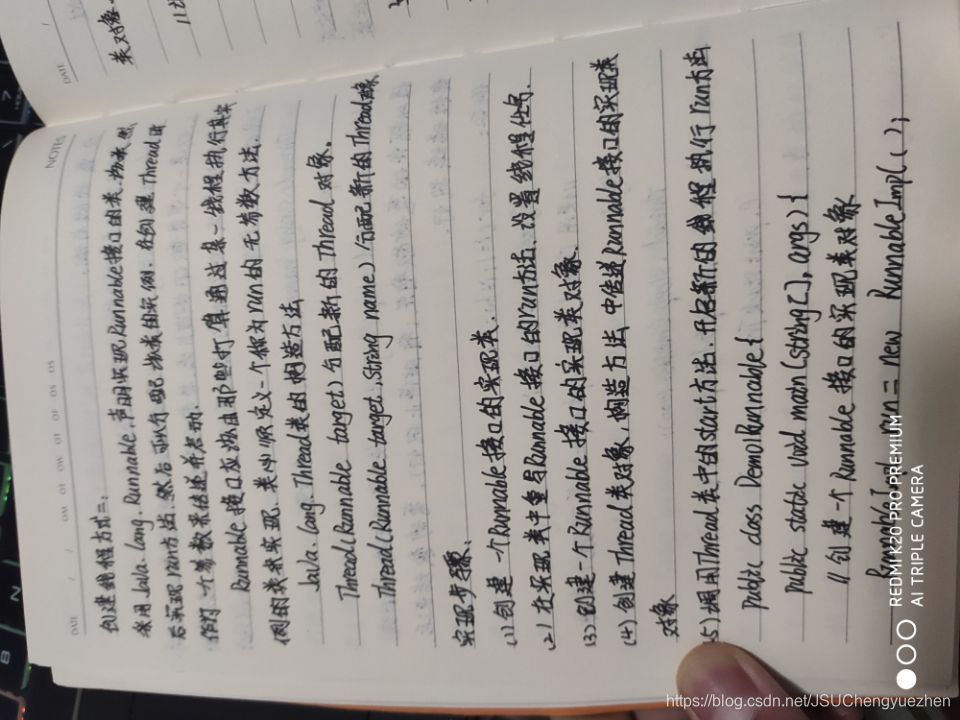 NOTES
DATE
创建线程方式二:
采用 java.lang.Runnable,声明实现Runnable接口的类.
后实现run方法.然后可以分配该类的实例.在创建Thread时
作为一个参数来传递并启动.
Runnable接口应该由那些打算通过某一线程执行其实
例的类来实现.类必须定义一个称为run的无参数方法.
java.lang.Thread类的构造方法
Thread(Runnable target)分配新的Thread对象.
Thread(Runnable target,String name)分配新的Thread对象
实现步骤:
(1)创建一个Runnable接口的实现类.
(2)在实现类中重写Runnable接口的run方法.设置线程任务.
(3)创建一个Runnable接口的实现类对象.
(4)创建Thread类对象,构造方法中传递Runnable接口的实现类
对象
(5)调用Thread类中的start方法.开启新的线程执行run方法
public class Demo1Runnable{
public static void main(String[] args){
//创建一个Runnable接口的实现类对象
RunnableImpl run = new RunnableImpl();
DATE
类对象
REDMI K20 PRO PREMIUM
AI TRIPLE CAMERA
https://blog.csdn.net/JSUChengyuezhen